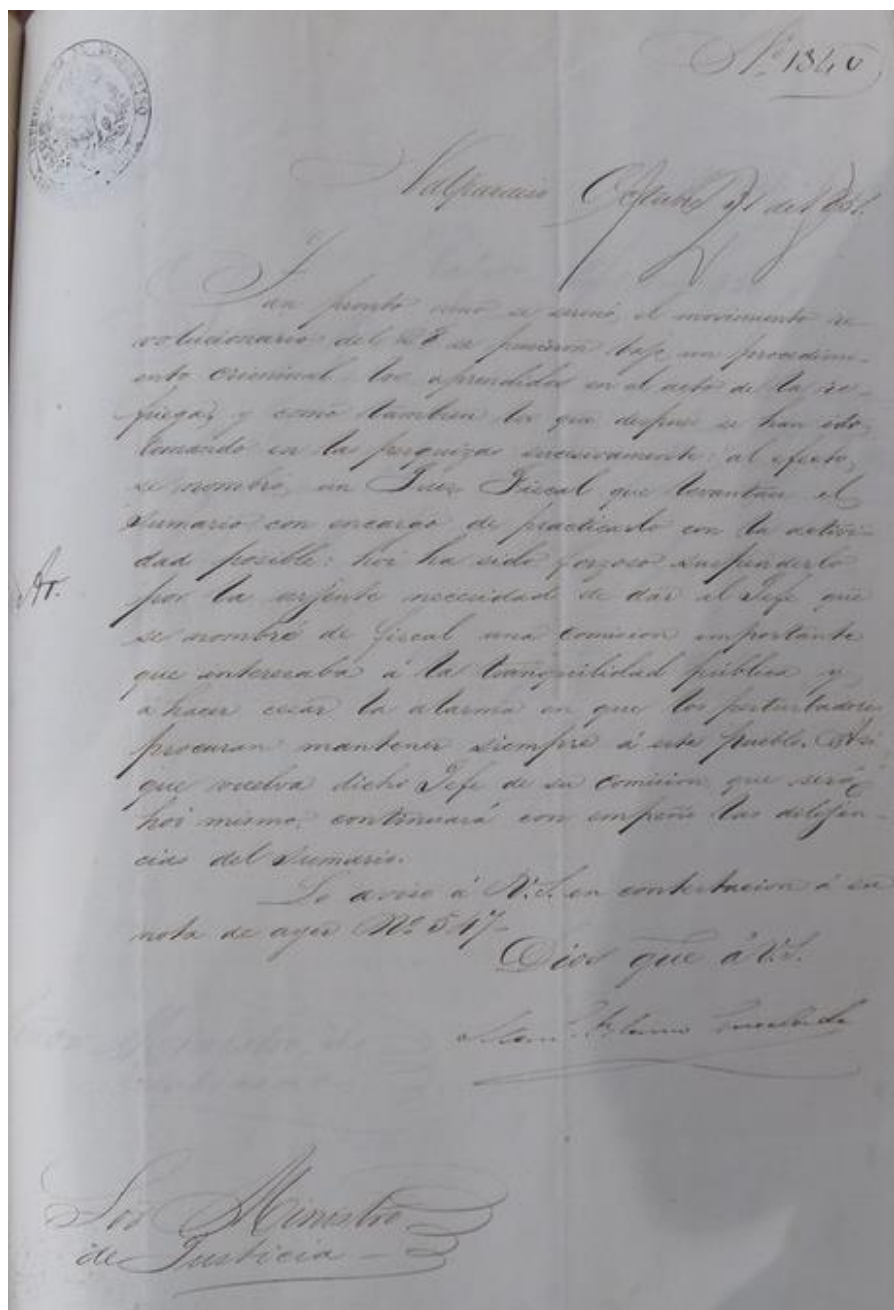 Nº 1340
Valparaiso Octubre 31 de 1851.
Tan pronto como se serenó el movimiento re-
volucionario del 28 se pusieron bajo un procedimi-
ento criminal los aprendidos en el acto de la re-
friega, y como tambien los que despues se han ido
tomando en las pesquizas sucesivamente: al efecto,
se nombró un Juez Fiscal que levantase el
Sumario con encargo de practicarlo con la activi-
dad posible: hoi ha sido forzoso suspenderlo
por la urjente necesidad de dar al Jefe que
se nombró de fiscal una comision importante
que interesaba á la tranquilidad pública y
a hacer cesar la alarma en que los perturbadores
procuran mantener siempre á este pueblo. Asi
que vuelva dicho Jefe de su comision, que será
hoi mismo, continuará con empeño las delijen-
cias del Sumario.
Lo aviso á V.S. en contestacion á su
nota de ayer Nº 547.
Dios gue á V.S.
Sor Ministro
de Justicia